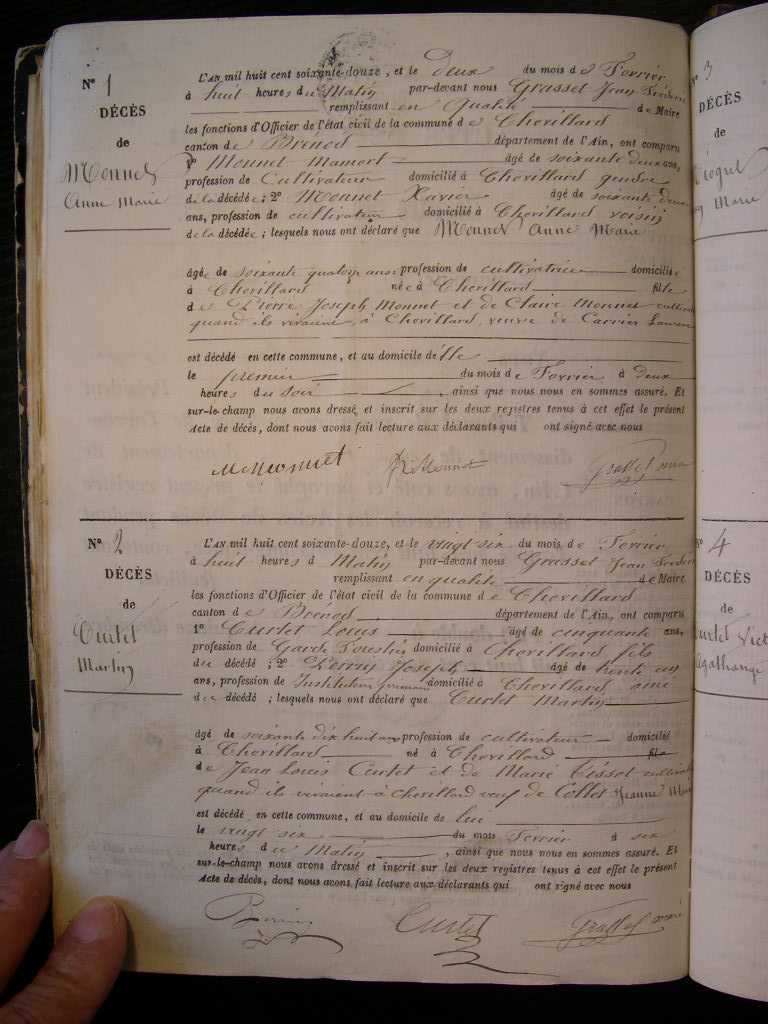 N° 1
DÉCÈS
de
Monnet
Anne Marie
L'AN mil huit cent soixante-douze, et le Deux du mois de Fevrier
à huit heures du Matin par-devant nous Grasset Jean Fréderic
remplissant en qualité de Maire
les fonctions d'Officier de l'état civil de la commune de Chevillard
canton de Brénod département de l'Ain, ont comparu
1° Monnet Mamert âgé de soixante deux ans,
profession de Cultivateur domicilié à Chevillard gendre
de la décédée; 2° Monnet Xavier âgé de soixante deux
ans, profession de cultivateur domicilié à Chevillard voisin
de la décédée; lesquels nous ont déclaré que Monnet Anne Marie
âgée de soixante quatorze ans profession de cultivatrice domiciliée
à Chevillard née à Chevillard fille
de Pierre Joseph Monnet et de Claire Monnet
quand ils vivaient, à Chevillard, veuve de Carrier Laurent
est décédé en cette commune, et au domicile d'Elle
le premier du mois de Fevrier à Deux
heures du soir, ainsi que nous nous en sommes assuré. Et
sur-le-champ nous avons dressé, et inscrit sur les deux registres tenus à cet effet le présent
Acte de décès, dont nous avons fait lecture aux déclarants qui ont signé avec nous
Monnet Monnet Grasset maire
N° 2
DÉCÈS
de
Curtet
Martin
L'AN mil huit cent soixante-douze, et le vingt six du mois de Fevrier
à huit heures d Matin par-devant nous Grasset Jean Frederic
remplissant en qualité de Maire
les fonctions d'Officier de l'état civil de la commune de Chevillard
canton de Brénod département de l'Ain, ont comparu
1° Curtet Louis âgé de cinquante ans,
profession de Garde Forestier domicilié à Chevillard fils
du décédé; 2° Perrin Joseph âgé de trente
ans, profession de Instituteur primaire domicilié à Chevillard, ami
du décédé; lesquels nous ont déclaré que Curtet Martin
âgé de soixante dix huit ans profession de cultivateur domicilié
à Chevillard né à Chevillard fils
de Jean Louis Curtet et de Marie Tissot
quand ils vivaient à Chevillard veuf de Collet Jeanne Marie
est décédé en cette commune, et au domicile de lui
le vingt six du mois Fevrier à six
heures du Matin, ainsi que nous nous en sommes assuré. Et
sur-le-champ nous avons dressé et inscrit sur les deux registres tenus à cet effet le présent
Acte de décès, dont nous avons fait lecture aux déclarants qui ont signé avec nous
Perrin Curtet Grasset maire
N° 3
DÉCÈS
de
Marie
N° 4
DÉCÈS
de